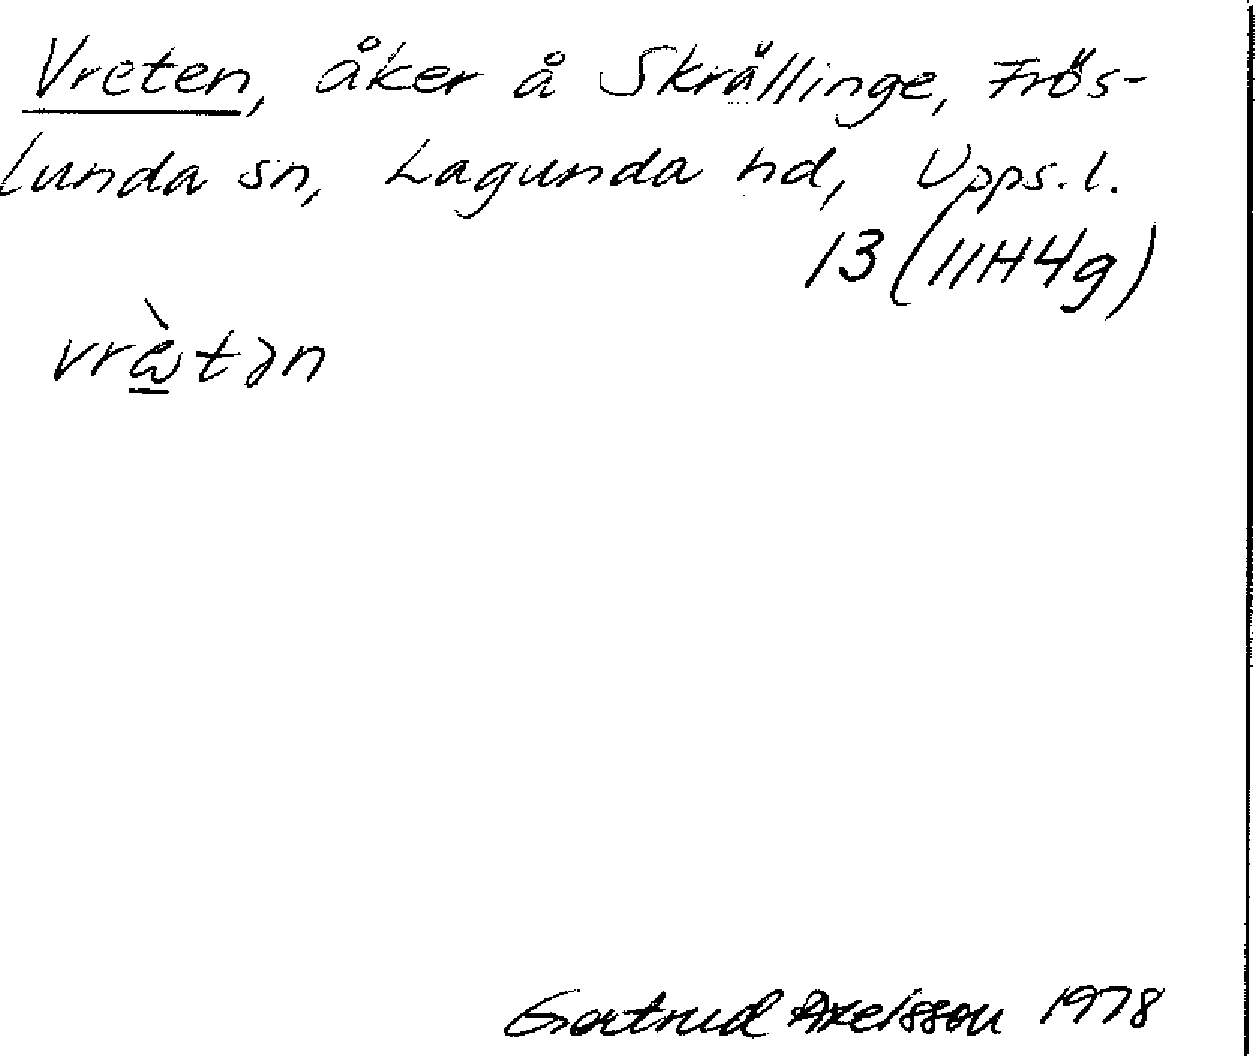 Vreten, åker å Skrållinge, Frös-
lunda sn, Lagunda hd, Upps.l.
13 (11H4g)
Gertrud Axelsson 1978